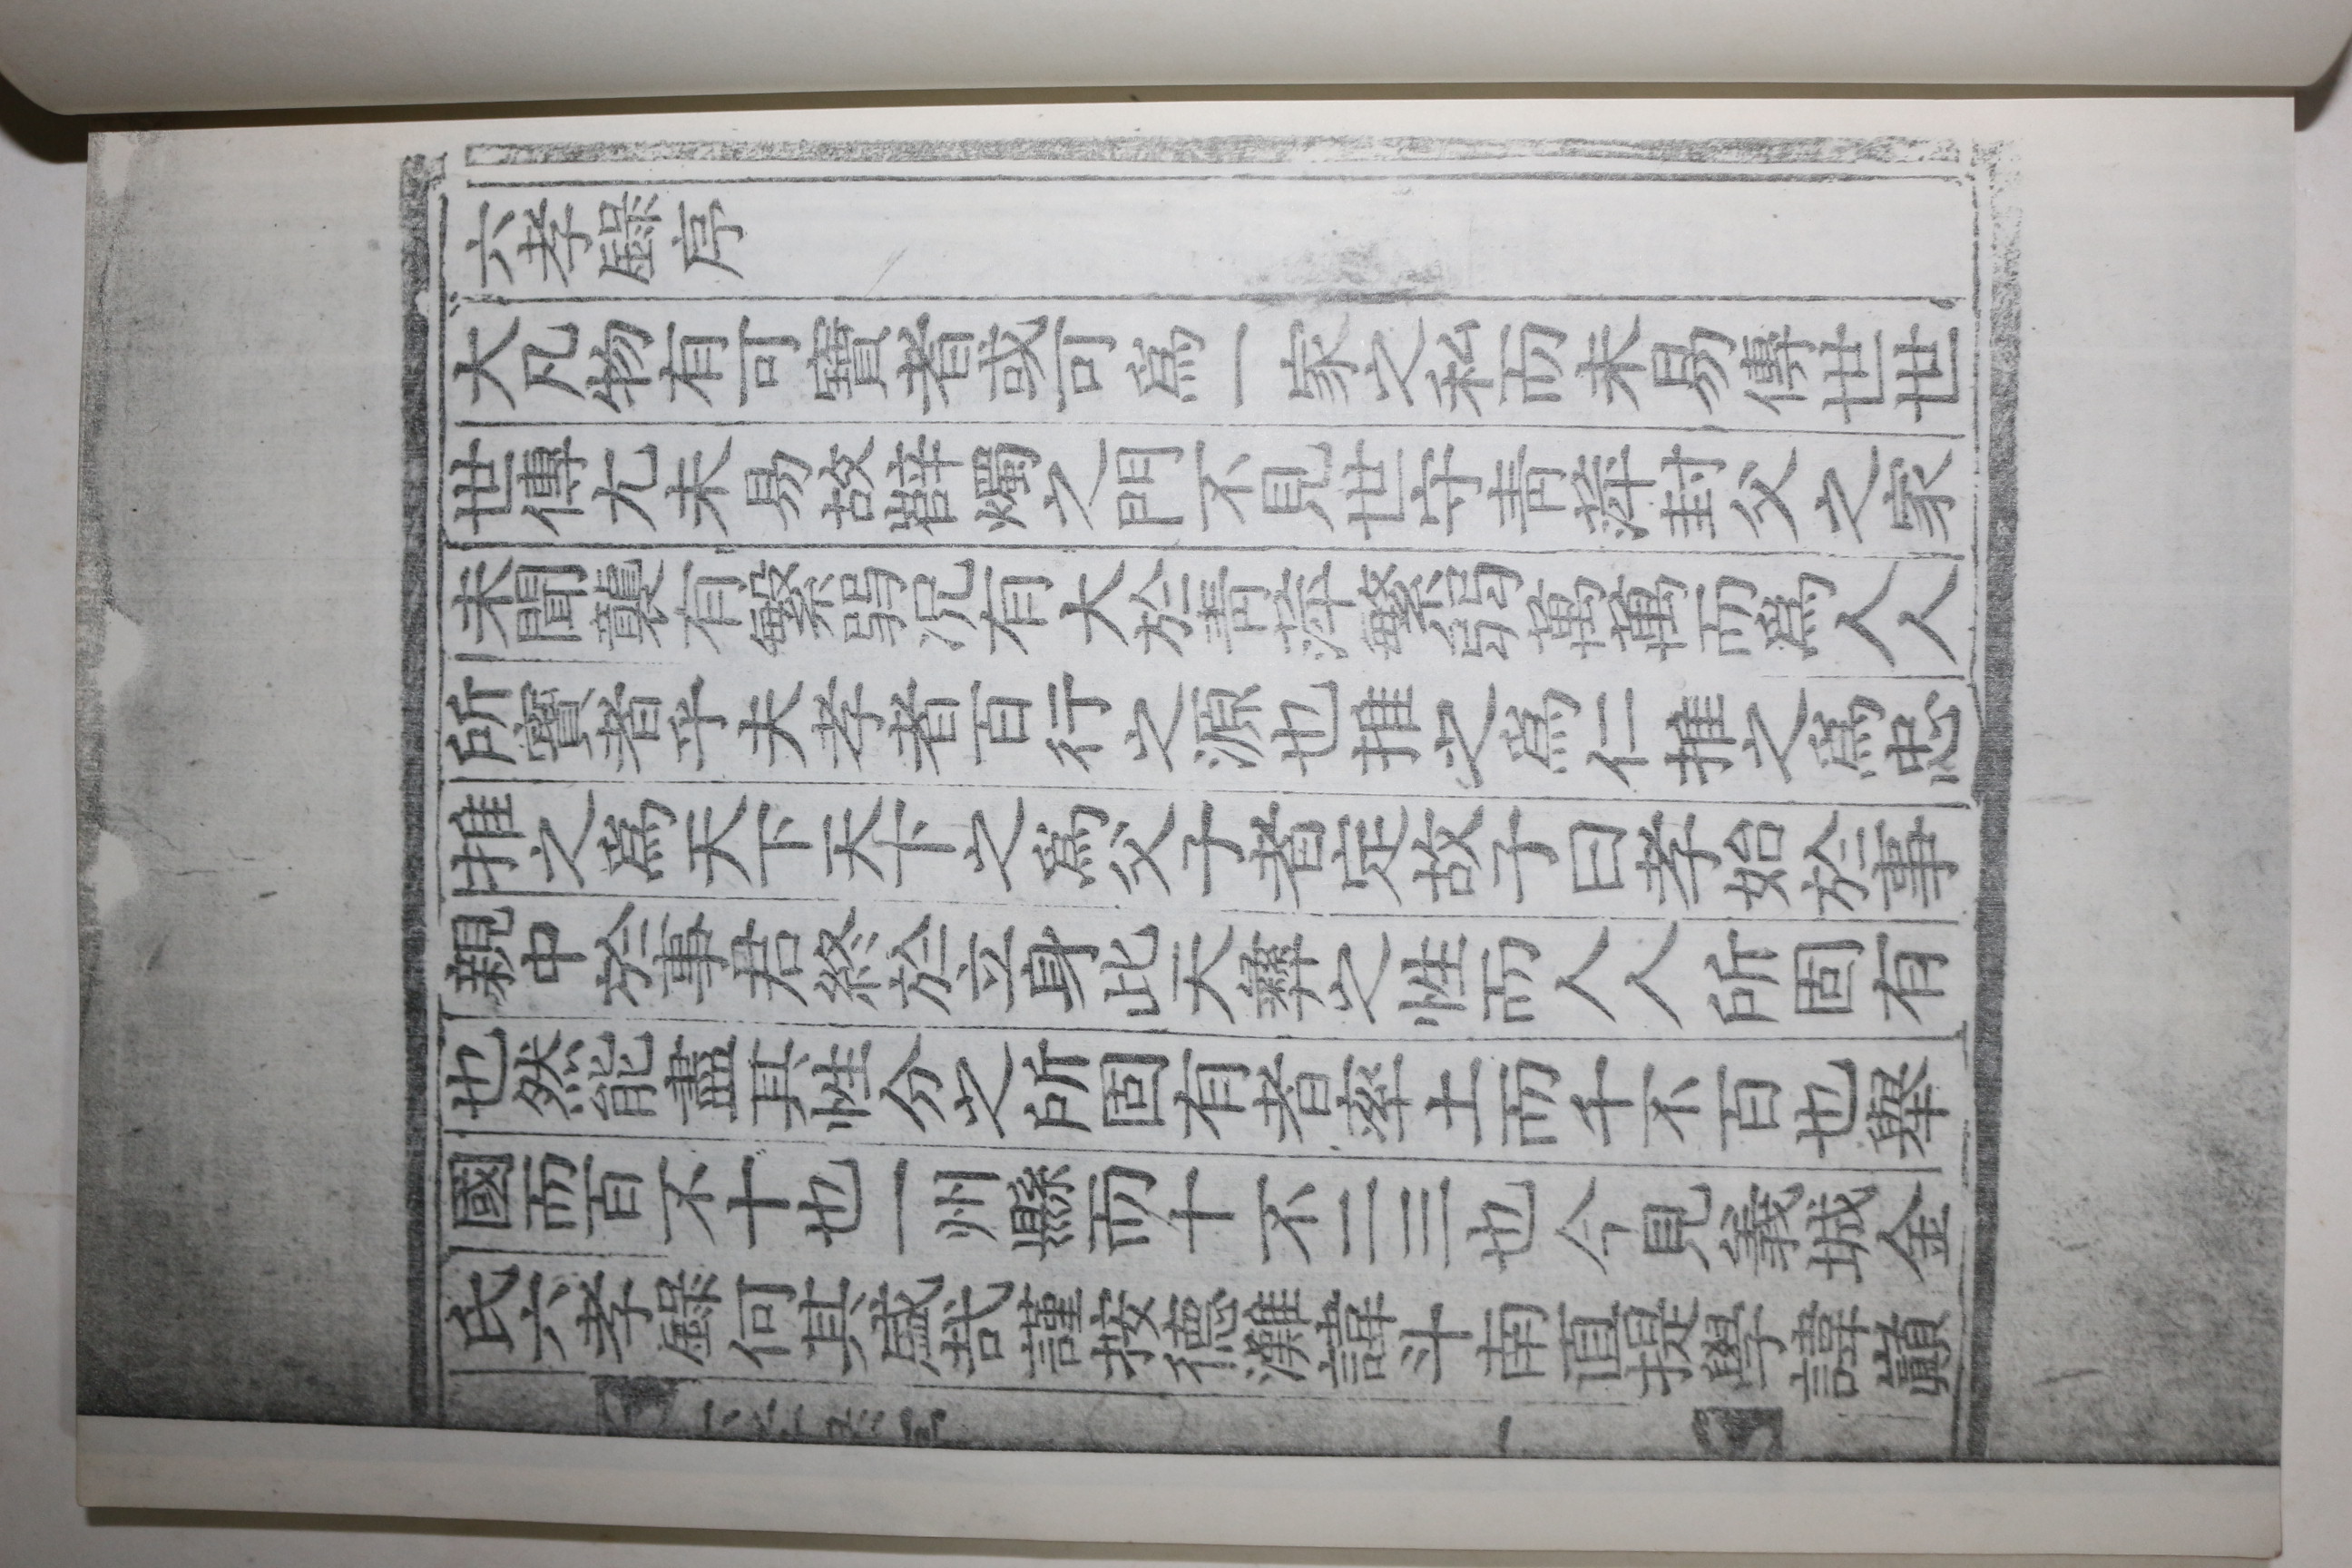 六孝錄序
大凡物有可寶者或可爲一家之私而未易傳世世
世傳尤未易故薛燭之門不見世守靑萍封父之家
未聞襲有繁弱况有大於靑萍繁弱萬萬而爲人人
所寶者乎夫孝者百行之源也推之爲仁推之爲忠
推之爲天下天下之爲父子者定故子曰孝始於事
親中於事君終於立身此天彝之性而人人所固有
也然能盡其性分之所固有者率土而千不百也舉
國而百不十也一州縣而十不二三也今見義城金
氏六孝錄何其盛哉謹按德灘諱斗南直提學諱巓
六孝錄序 一